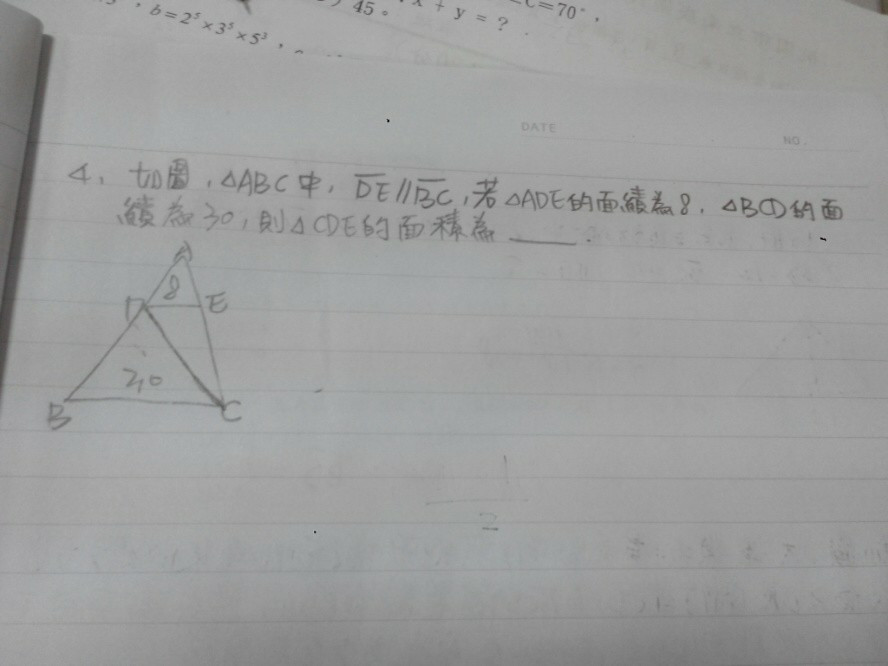 b=2⁵×3⁵×5³,
45。
x+y=?
C=70°,
DATE
NO.
4. 如圖,△ABC中,D̅E̅//B̅C̅,若△ADE的面績為8,△BCD的面
績為30,則△CDE的面積為____.
A
8
D
E
30
B
C